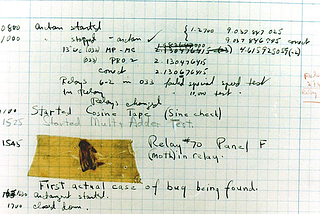 0800 antan started { 1.2700 9.037 847 025
1000 stopped - antan ✓ 9.037 846 995 correct
13"uc (032) MP-MC 4.615925059(-2)
033) PRO 2 2.130476415
correct 2.130676415
Relays 6-2 in 033 failed special speed test
in relay 10,000 test.
Relays changed
1100 Started Cosine Tape (Sine check)
1525 Started Mult+Adder Test.
1545 Relay #70 Panel F
(Moth) in relay.
First actual case of bug being found.
antangent started.
1700 closed down.